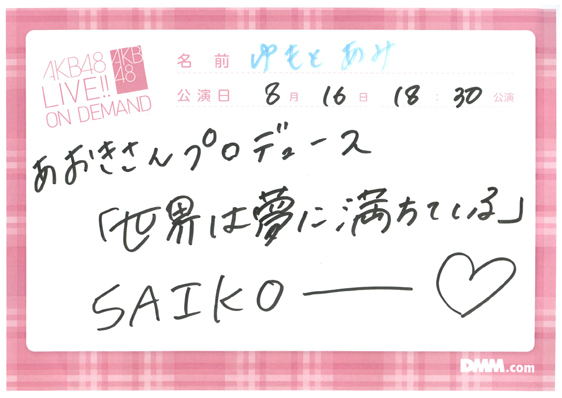 AKB48
LIVE!!
ON DEMAND
AKB
48
名前 ゆもと あみ
公演日 8月 16日 18:30 公演
あおきさんプロデュース
「世界は夢に満ちている」
SAIKO ー ♡
DMM.com